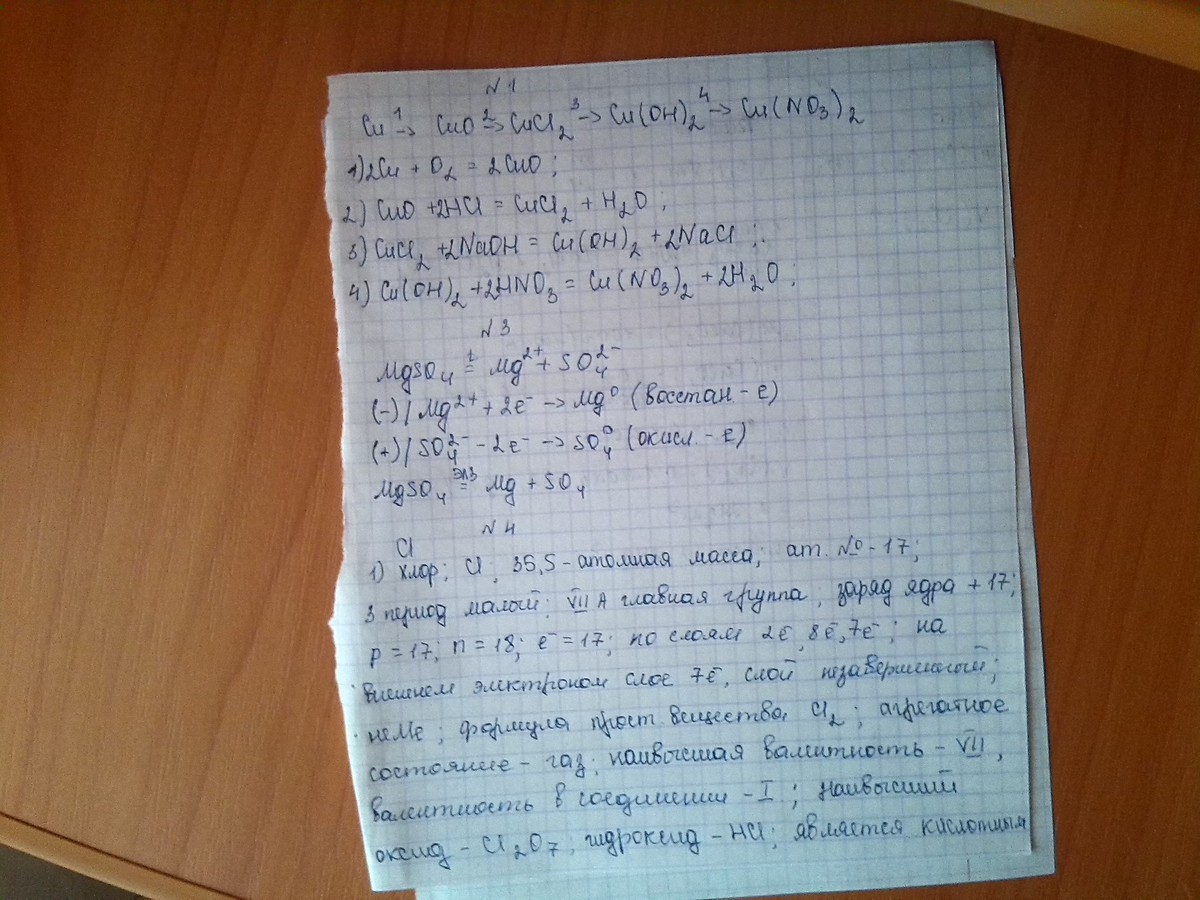 N1
Cu →¹ CuO →² CuCl₂ →³ Cu(OH)₂ →⁴ Cu(NO₃)₂
1) 2Cu + O₂ = 2CuO;
2) CuO + 2HCl = CuCl₂ + H₂O;
3) CuCl₂ + 2NaOH = Cu(OH)₂ + 2NaCl;
4) Cu(OH)₂ + 2HNO₃ = Cu(NO₃)₂ + 2H₂O;
N3
MgSO₄ = Mg²⁺ + SO₄²⁻
(-) | Mg²⁺ + 2e⁻ → Mg⁰ (восстан-е)
(+) | SO₄²⁻ - 2e⁻ → SO₄⁰ (окисл.-е)
MgSO₄ =элз Mg + SO₄
N4
Cl
1) хлор; Cl; 35,5 - атомная масса; ат. № - 17;
3 период малый; VII A главная группа; заряд ядра + 17;
p = 17; n = 18; e⁻ = 17; по слоям 2ē, 8ē, 7ē; на
внешнем электроном слое 7ē, слой незавершенный;
неМе; формула прост. вещества Cl₂; агрегатное
состояние - газ; наивысшая валентность - VII,
валентность в соединении - I; наивысший
оксид - Cl₂O₇; гидроксид - HCl; является кислотным